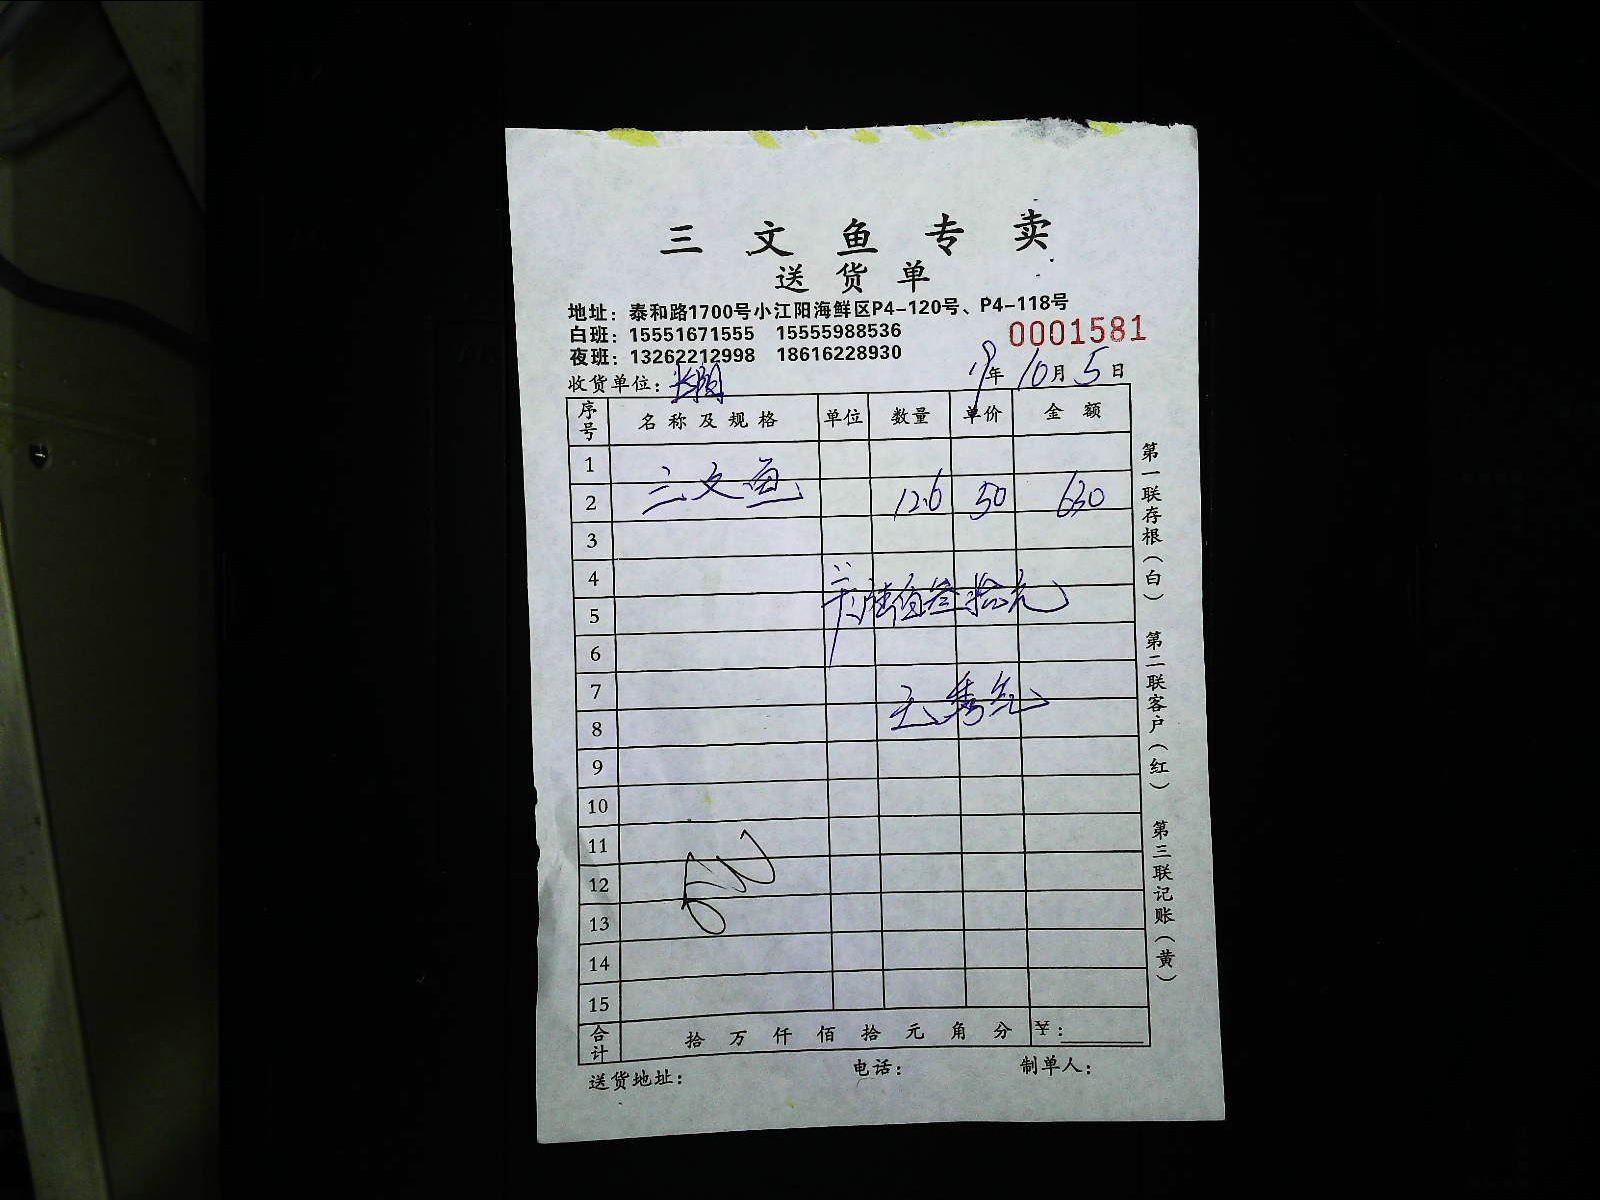 三文鱼专卖
送货单
地址：泰和路1700号小江阳海鲜区P4-120号、P4-118号
白班：15551671555 15555988536
夜班：13262212998 18616228930
0001581
收货单位： 19年10月5日
序号 名称及规格 单位 数量 单价 金额
1
2 三文鱼 12.6 50 630
3
4
5 陆佰叁拾元
6
7
8
9
10
11
12
13
14
15
合计 拾万仟佰拾元角分 ¥：
送货地址： 电话： 制单人：
第一联存根（白） 第二联客户（红） 第三联记账（黄）